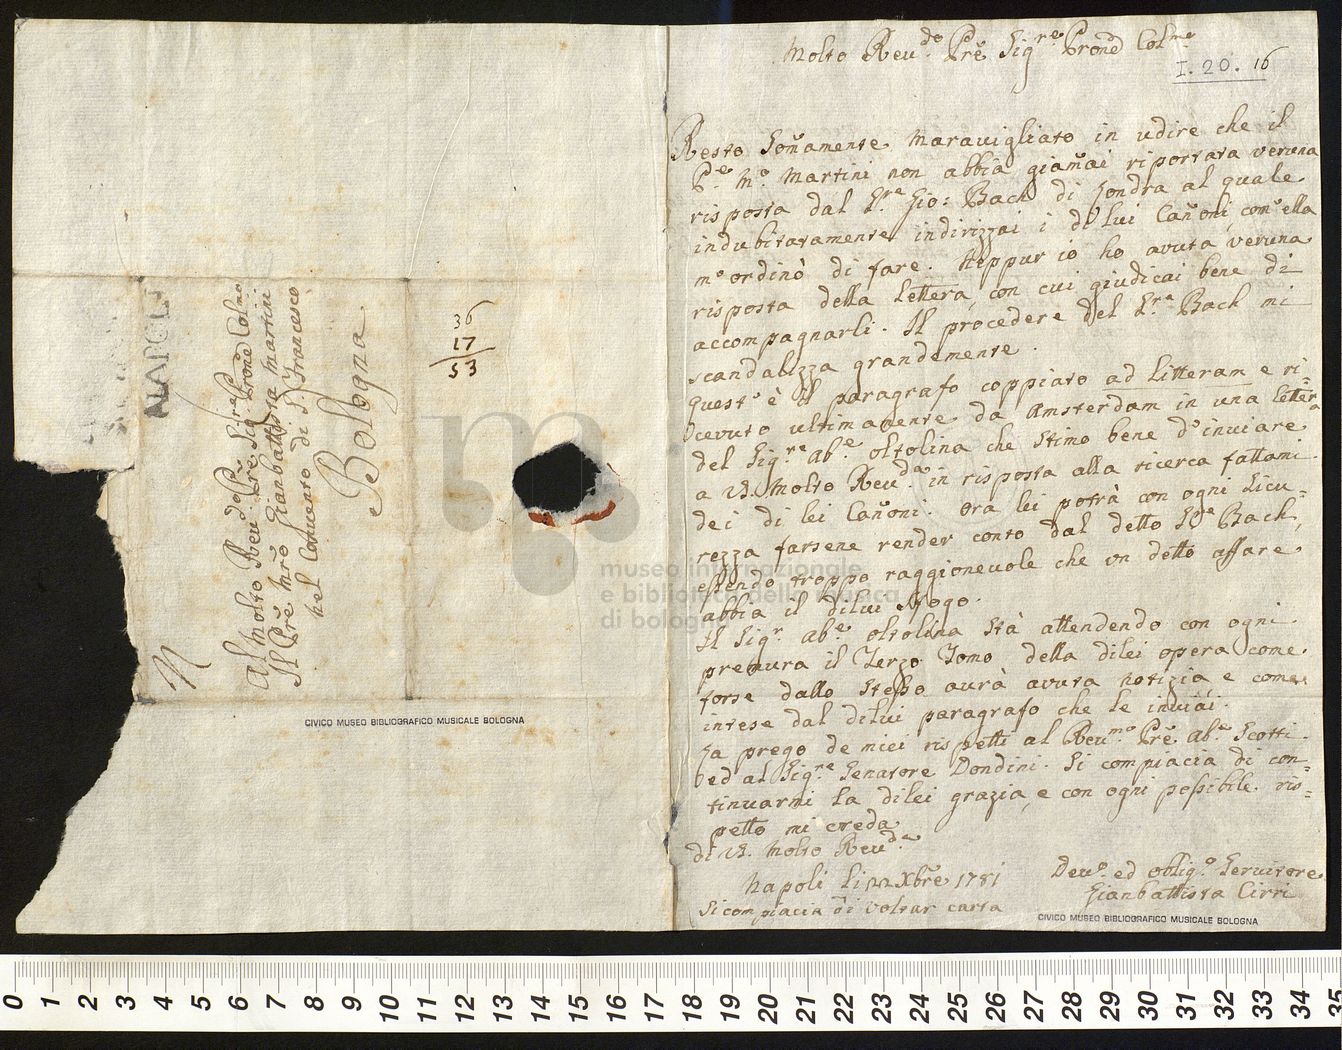 NAPOLI
Al Molto Reu.do Pre. Sig.re Prone Colmo
Il Pre. Mro Gianbattista Martini
nel Conuento di S. Francesco
Bologna
36
17
53
CIVICO MUSEO BIBLIOGRAFICO MUSICALE BOLOGNA
museo internazionale
e biblioteca della musica
di bologna
Molto Reu.do Pre Sig.re Prone Col.mo
I. 20. 16
Resto Somamente marauigliato in udire che il
P.e M.o Martini non abbia giamai riportata veruna
risposta dal S.re Gio: Bach di Londra al quale
indubitatamente indirizzai i di lui Canoni, com'ella
m'ordinò di fare. Neppur io ho avuta veruna
risposta della lettera, con cui giudicai bene di
accompagnarli. Il procedere del S.re Bach mi
scandalizza grandemente.
Quest'è il paragrafo coppiato ad Litteram e ri=
ceuuto ultimamente da Amsterdam in una lettera
del Sig.re ab.e Oltolina che stimo bene d'inuiare
a V.S. Molto Reu.da in risposta alla ricerca fattami
dei di lei Canoni. Ora lei potrà con ogni sicu=
rezza farsene render conto dal detto S.re Bach,
essendo troppo raggioneuole che un detto affare
abbia il dilui sfogo.
Il Sig.r ab.e Oltolina stà attendendo con ogni
premura il Terzo Tomo della dilei opera come
forse dallo stesso aurà avuta notizia e come
intese dal dilui paragrafo che le inuiai.
La prego de miei rispetti al Reu.mo Pre. ab.e Scotti
ed al Sig.re Senatore Dondini. Si compiacia di con=
tinuarmi la dilei grazia, e con ogni possibile ris=
petto mi creda
di V.S. Molto Reu.da
Napoli li 22 Xbre 1781
Deu.o ed oblig.o Seruitore
Gianbattista Cirri
Si compiacia di voltar carta
CIVICO MUSEO BIBLIOGRAFICO MUSICALE BOLOGNA
0 1 2 3 4 5 6 7 8 9 10 11 12 13 14 15 16 17 18 19 20 21 22 23 24 25 26 27 28 29 30 31 32 33 34 35